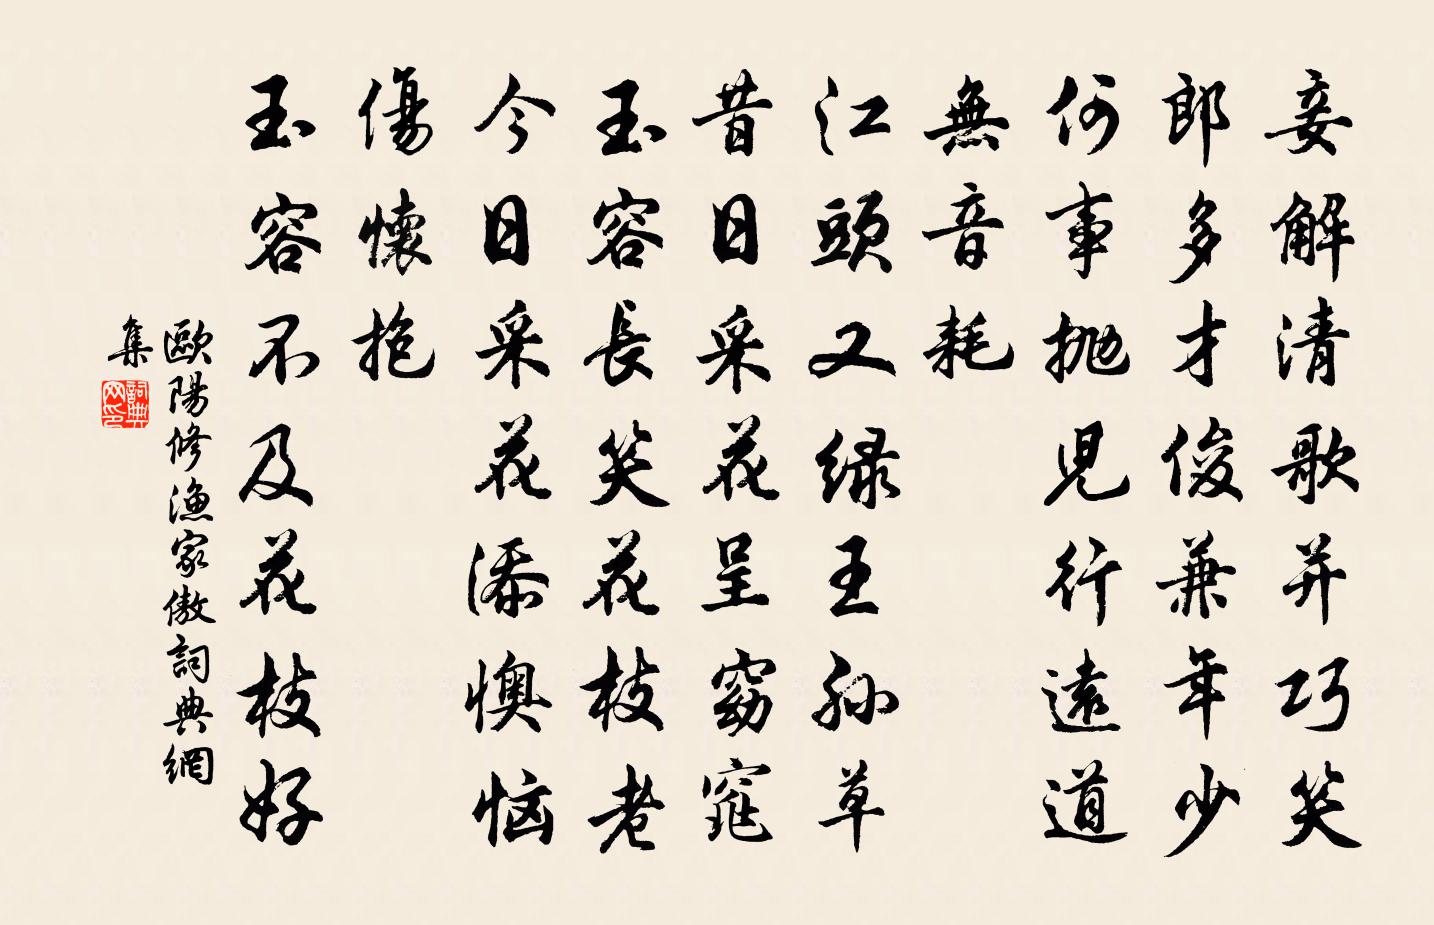 妾解清歌并巧笑
郎多才俊兼年少
何事抛児行遠道
無音耗
江頭又緑王孙草
昔日采花呈窈窕
玉容長笑花枝老
今日采花添懊恼
傷懷抱
玉容不及花枝好
歐陽修漁家傲詞典網
集
詞典
网印